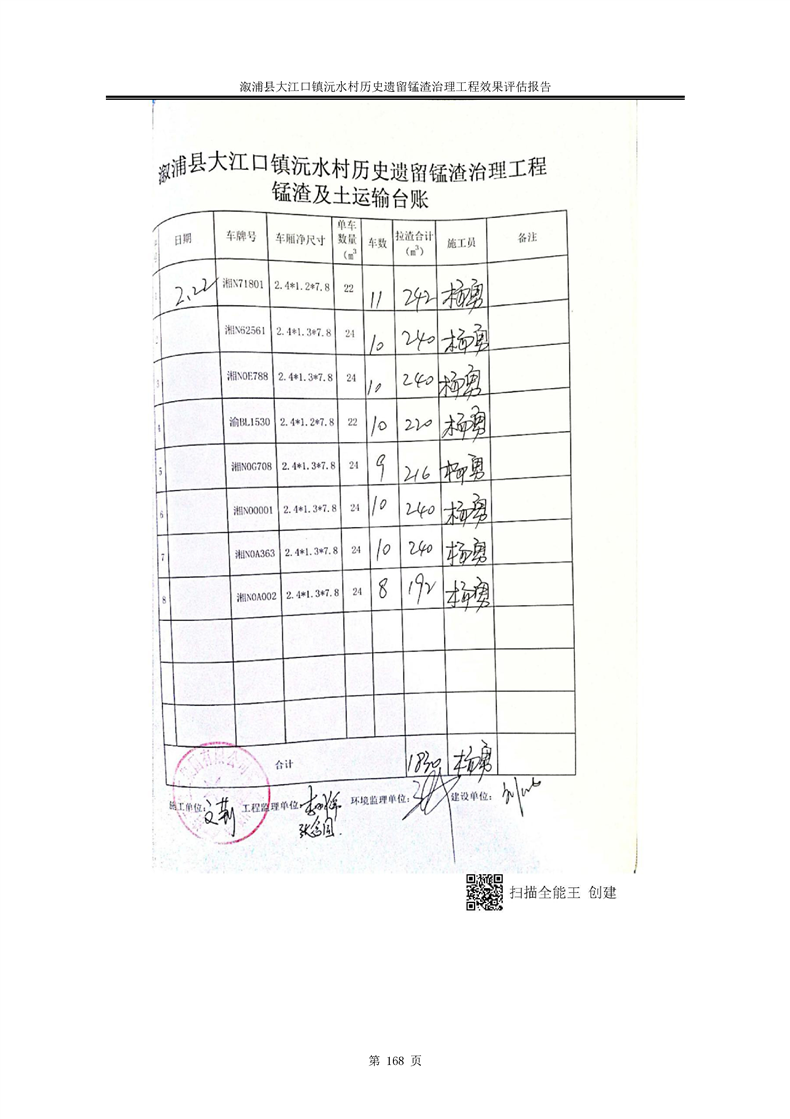 溆浦县大江口镇沅水村历史遗留锰渣治理工程效果评估报告
溆浦县大江口镇沅水村历史遗留锰渣治理工程
锰渣及土运输台账
日期 车牌号 车厢净尺寸 单车数量(m³ 车数 拉渣合计(m³) 施工员 备注
2.22 湘N71801 2.4*1.2*7.8 22 11 242 杨勇
2 湘N62561 2.4*1.3*7.8 24 10 240 杨勇
3 湘N0E788 2.4*1.3*7.8 24 10 240 杨勇
4 渝BL1530 2.4*1.2*7.8 22 10 220 杨勇
5 湘N0G708 2.4*1.3*7.8 24 9 216 杨勇
6 湘N00001 2.4*1.3*7.8 24 10 240 杨勇
7 湘N0A363 2.4*1.3*7.8 24 10 240 杨勇
8 湘N0A002 2.4*1.3*7.8 24 8 192 杨勇
合计 1830 杨勇
施工单位: 工程监理单位: 环境监理单位: 建设单位:
扫描全能王 创建
第 168 页